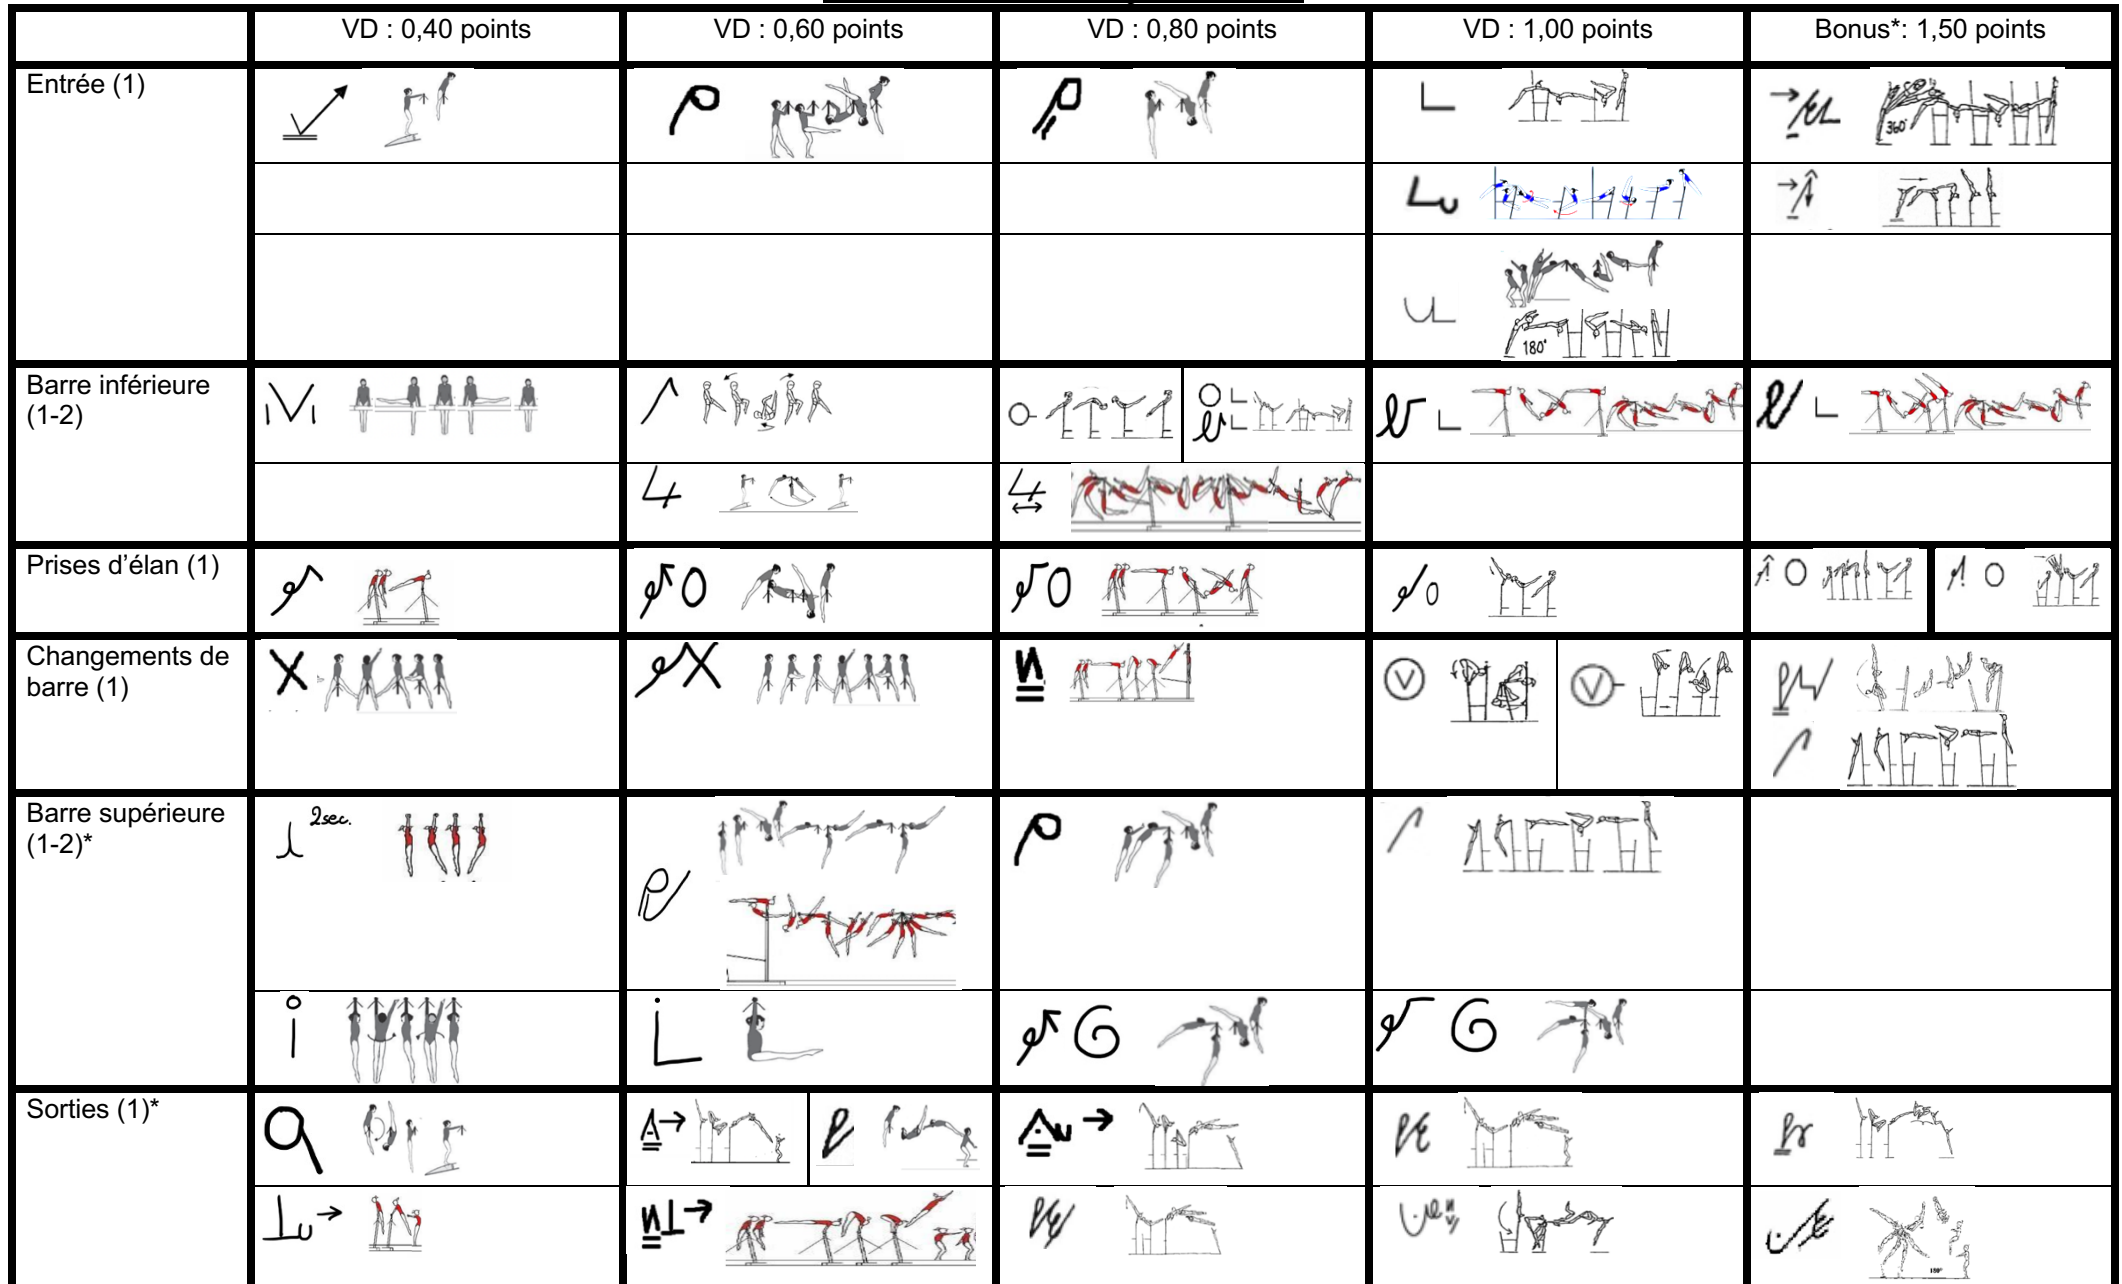 VD : 0,40 points
VD : 0,60 points
VD : 0,80 points
VD : 1,00 points
Bonus*: 1,50 points
Entrée (1)
360°
180°
Barre inférieure
(1-2)
Prises d'élan (1)
Changements de
barre (1)
Barre supérieure
(1-2)*
2sec.
Sorties (1)*
180°